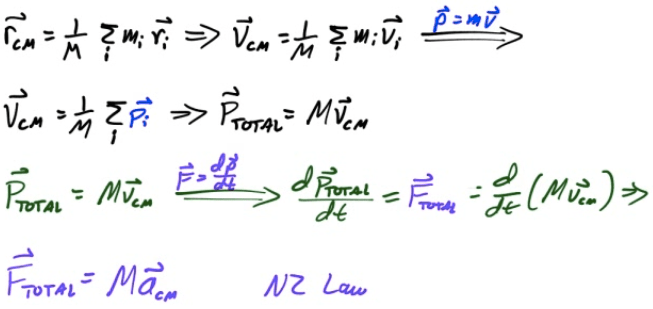 $\vec{r}_{CM} = \frac{1}{M} \sum_i m_i \vec{r}_i \Rightarrow \vec{V}_{CM} = \frac{1}{M} \sum_i m_i \vec{v}_i \xRightarrow{\vec{p} = m\vec{v}}$
$\vec{V}_{CM} = \frac{1}{M} \sum_i \vec{p}_i \Rightarrow \vec{P}_{TOTAL} = M\vec{v}_{CM}$
$\vec{P}_{TOTAL} = M\vec{v}_{CM} \xRightarrow{\vec{F} = \frac{d\vec{p}}{dt}} \frac{d\vec{P}_{TOTAL}}{dt} = \vec{F}_{TOTAL} = \frac{d}{dt}(M\vec{v}_{CM}) \Rightarrow$
$\vec{F}_{TOTAL} = M\vec{a}_{CM}$ N2 Law